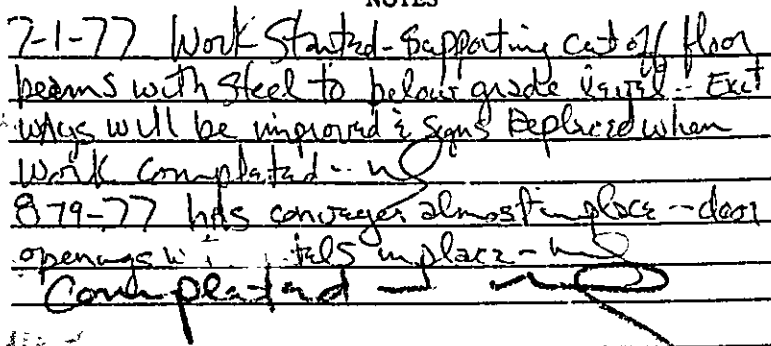 NOTES
7-1-77 Work Started - Supporting cut off floor
beams with Steel to below grade level - Exit
ways will be improved & signs Replaced when
Work Completed --
8 79-77 has conveyer almost in place -- door
openings in place -
Completed —